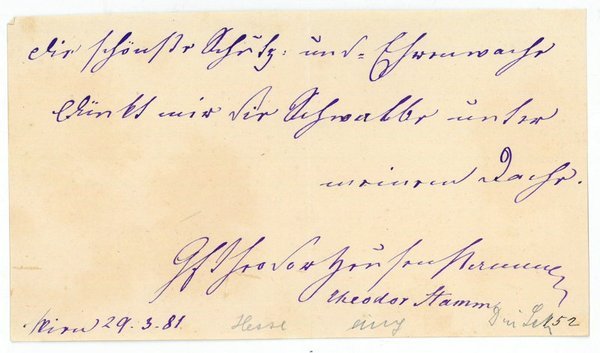 die schönste Schutz- und Ehrenwache
dünkt mir die Schwalbe unter
meinem Dache.
Gf Theodor Heusenstamm
Theodor Stamm
Wien 29.3.81. Hesse 52